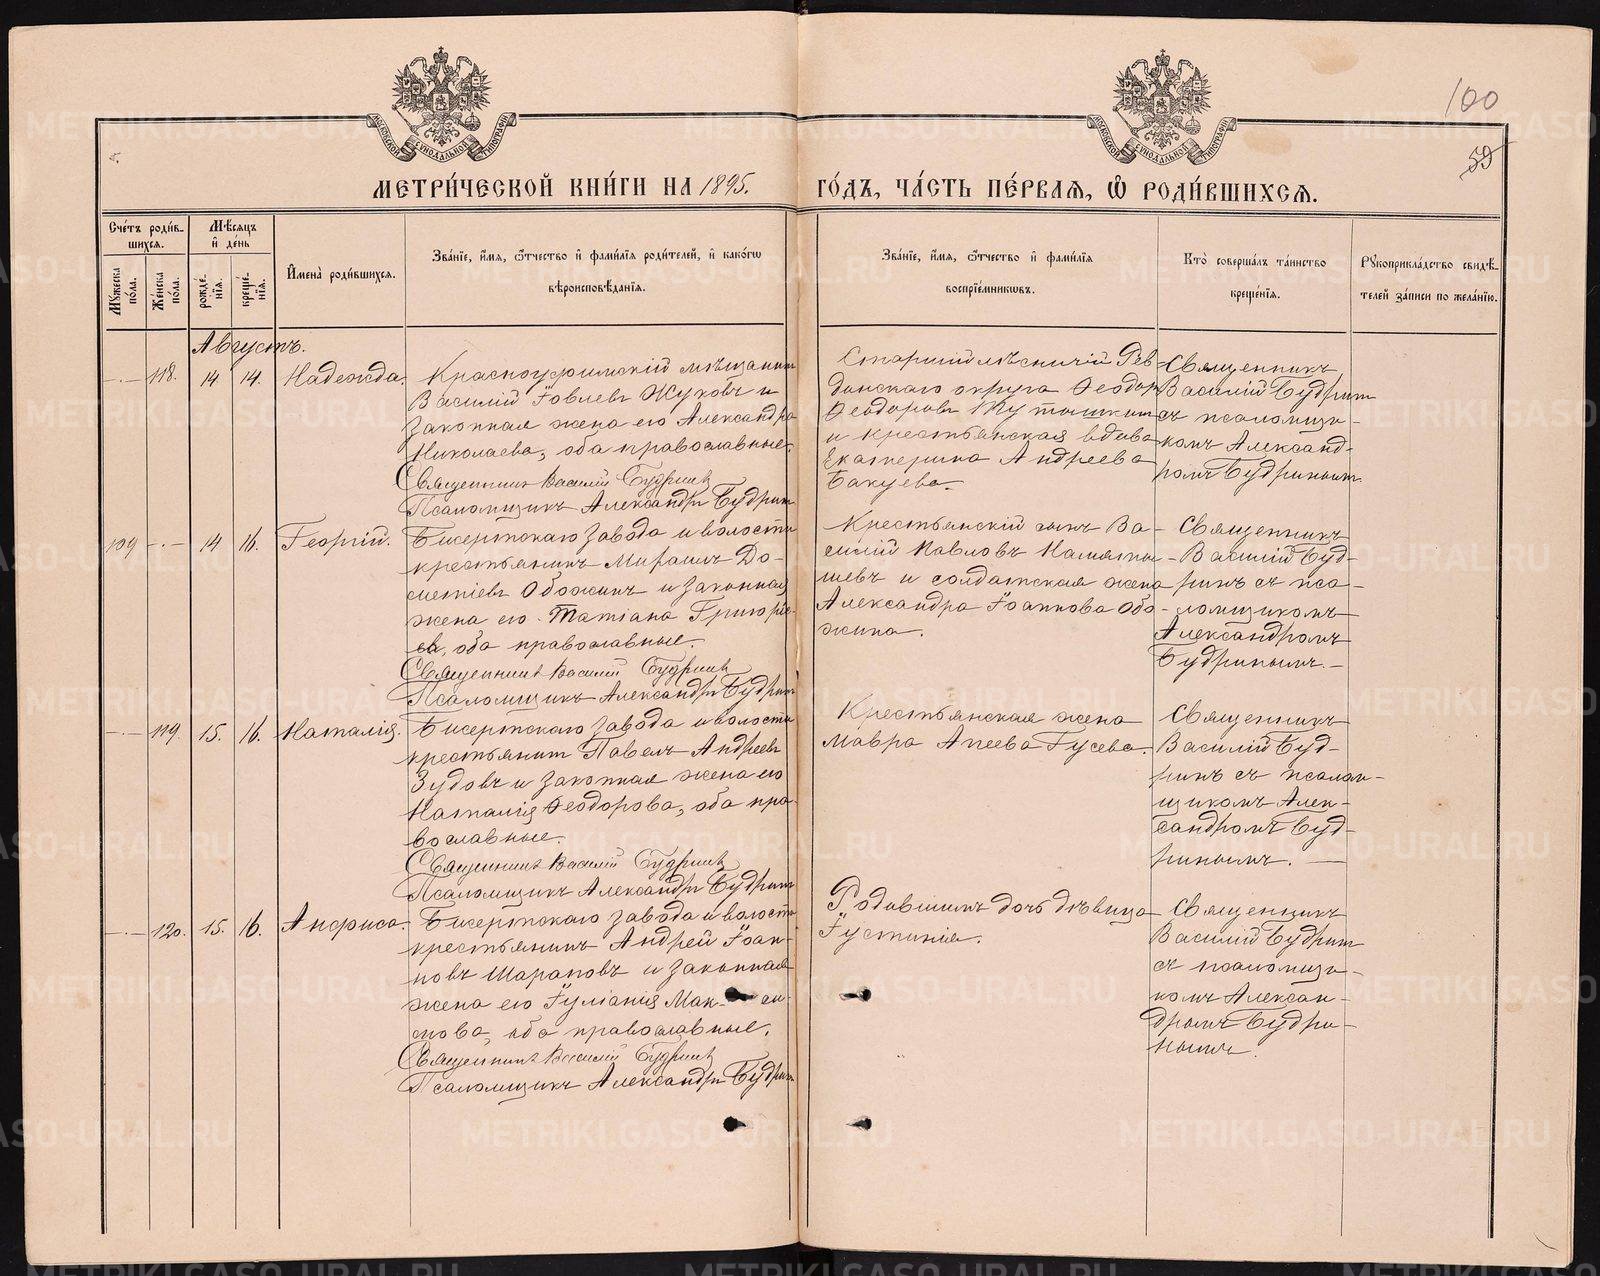 100
59
МЕТРИ́ЧЕСКОЙ КНИ́ГИ НА 1895. ГО́ДЪ, ЧА́СТЬ ПЕ́РВАЯ, Ѡ РОДИ́ВШИХСЯ.
Сче́тъ роди́в-
шихся.
Му́жеска по́ла.
Же́нска по́ла.
Мѣ́сяцъ
и҆ де́нь
рожде́-
нїя.
креще́-
нїя.
И҆мена̀ роди́вшихся.
Зва́нїе, и҆́мя, ѻ҆́тчество и҆ фами́лїя роди́телей, и҆ како́гѡ
вѣроисповѣ́данїя.
Зва́нїе, и҆́мя, ѻ҆́тчество и҆ фами́лїя
воспрїе́мниковъ.
Кто̀ соверша́лъ та́инство
креще́нїя.
Рукоприкла́дство свидѣ́-
телей за́писи по жела́нїю.
Августъ.
-.- 118. 14 14. Надежда.
Красноуфимскій мѣщанинъ
Василій Іовлевъ Жуковъ и
законная жена его Александра
Николаева, оба православные.
Священникъ Василій Будринъ
Псаломщикъ Александръ Будринъ
Старшій лѣсничій Рев-
динскаго округа Ѳеодоръ
Ѳеодоровъ
и крестьянская вдова
Екатерина Андреева
Бакуева.
Священникъ
Василій Будринъ
съ псаломщи-
комъ Александ-
ромъ Будринымъ.
109 -.- 14 16. Георгій.
Бисертскаго завода и волости
крестьянинъ Миронъ До-
метіевъ Обожинъ и законная
жена его Татіана Григорье-
ва, оба православные.
Священникъ Василій Будринъ
Псаломщикъ Александръ Будринъ
Крестьянскій сынъ Ва-
силій Павловъ
и солдатская жена
Александра Іоаннова Обо-
жина.
Священникъ
Василій Буд-
ринъ съ пса-
ломщикомъ
Александромъ
Будринымъ.-
-.- 119. 15. 16. Наталія.
Бисертскаго завода и волости
крестьянинъ Павелъ Андреевъ
Зудовъ и законная жена его
Наталія Ѳеодорова, оба пра-
вославные.
Священникъ Василій Будринъ
Псаломщикъ Александръ Будринъ
Крестьянская жена
Мавра Гусева.
Священникъ
Василій Буд-
ринъ съ псалом-
щикомъ Алек-
сандромъ Буд-
ринымъ.
-.- 120. 15. 16. Анфиса.
Бисертскаго завода и волости
крестьянинъ Андрей Іоан-
новъ Шараповъ и законная
жена его Іуліанія Мак-
мова, оба православные.
Священникъ Василій Будринъ
Псаломщикъ Александръ Будринъ
Родившимъ дочь дѣвица
Іустинія.
Священникъ
Василій Будринъ
съ псаломщи-
комъ Алексан-
дромъ Будри-
нымъ.
METRIKI.GASO-URAL.RU